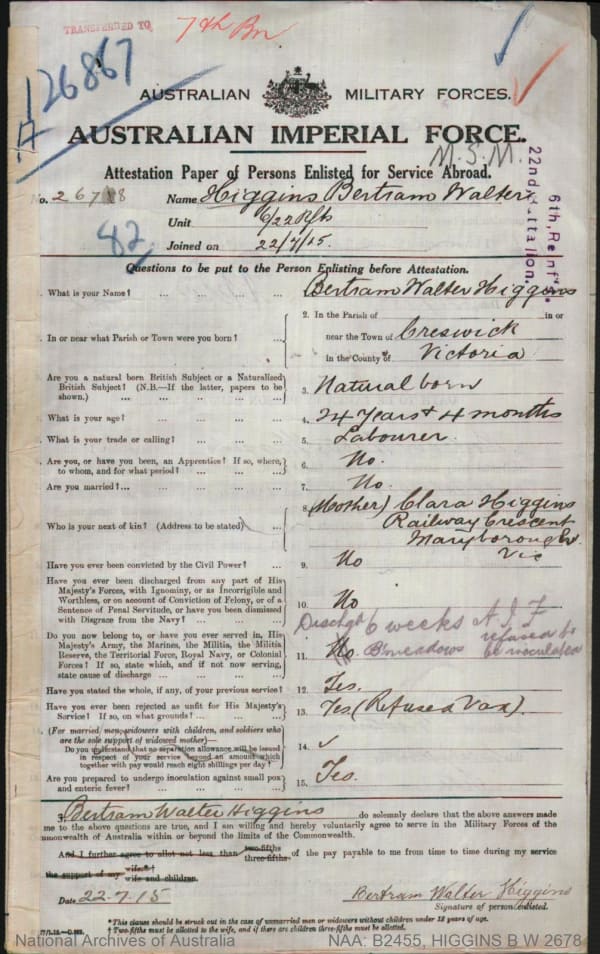 TRANSFERRED TO
7th Bn
126867
AUSTRALIAN MILITARY FORCES.
AUSTRALIAN IMPERIAL FORCE.
M.S.M.
Attestation Paper of Persons Enlisted for Service Abroad.
No. 2678 Name Higgins Bertram Walter
Unit 6/22 Rfts
82 Joined on 22/7/15.
6th, Reinf
22nd Battalion.
Questions to be put to the Person Enlisting before Attestation.
What is your Name? ... ... ... ... Bertram Walter Higgins
2. In the Parish of in or
In or near what Parish or Town were you born? ... near the Town of Creswick
in the County of Victoria
Are you a natural born British Subject or a Naturalized
British Subject? (N.B.—If the latter, papers to be
shown.) ... ... ... ... 3. Natural born
What is your age? ... ... ... ... 4. 24 Years & 4 months
What is your trade or calling? ... ... ... 5. Labourer.
Are you, or have you been, an Apprentice? If so, where,
to whom, and for what period? ... ... ... 6. No.
Are you married?... ... ... ... 7. No.
8. (Mother) Clara Higgins
Railway Crescent
Who is your next of kin? (Address to be stated) Maryborough
Vic
Have you ever been convicted by the Civil Power? ... 9. No
Have you ever been discharged from any part of His
Majesty's Forces, with Ignominy, or as Incorrigible and
Worthless, or on account of Conviction of Felony, or of a
Sentence of Penal Servitude, or have you been dismissed
with Disgrace from the Navy? ... ... 10. No
Dischgd 6 weeks A I F
refused to
be inoculated
B'meadows
Do you now belong to, or have you ever served in, His
Majesty's Army, the Marines, the Militia, the Militia
Reserve, the Territorial Force, Royal Navy, or Colonial
Forces? If so, state which, and if not now serving,
state cause of discharge ... ... ... 11. No
Have you stated the whole, if any, of your previous service? 12. Yes.
Have you ever been rejected as unfit for His Majesty's
Service? If so, on what grounds? ... ... 13. Yes (Refused Vax).
(For married men, widowers with children, and soldiers who
are the sole support of widowed mother)—
Do you understand that no separation allowance will be issued
in respect of your service beyond an amount which
together with pay would reach eight shillings per day? 14. ✓
Are you prepared to undergo inoculation against small pox
and enteric fever? ... ... ... 15. Yes.
I, Bertram Walter Higgins do solemnly declare that the above answers made
me to the above questions are true, and I am willing and hereby voluntarily agree to serve in the Military Forces of the
mmonwealth of Australia within or beyond the limits of the Commonwealth.
And I further agree to allot not less than two-fifths three-fifths of the pay payable to me from time to time during my service
the support of my wife.*† wife and children.
Date 22.7.15 Bertram Walter Higgins
Signature of person enlisted.
*This clause should be struck out in the case of unmarried men or widowers without children under 18 years of age.
† Two-fifths must be allotted to the wife, and if there are children three-fifths must be allotted.
National Archives of Australia NAA: B2455, HIGGINS B W 2678